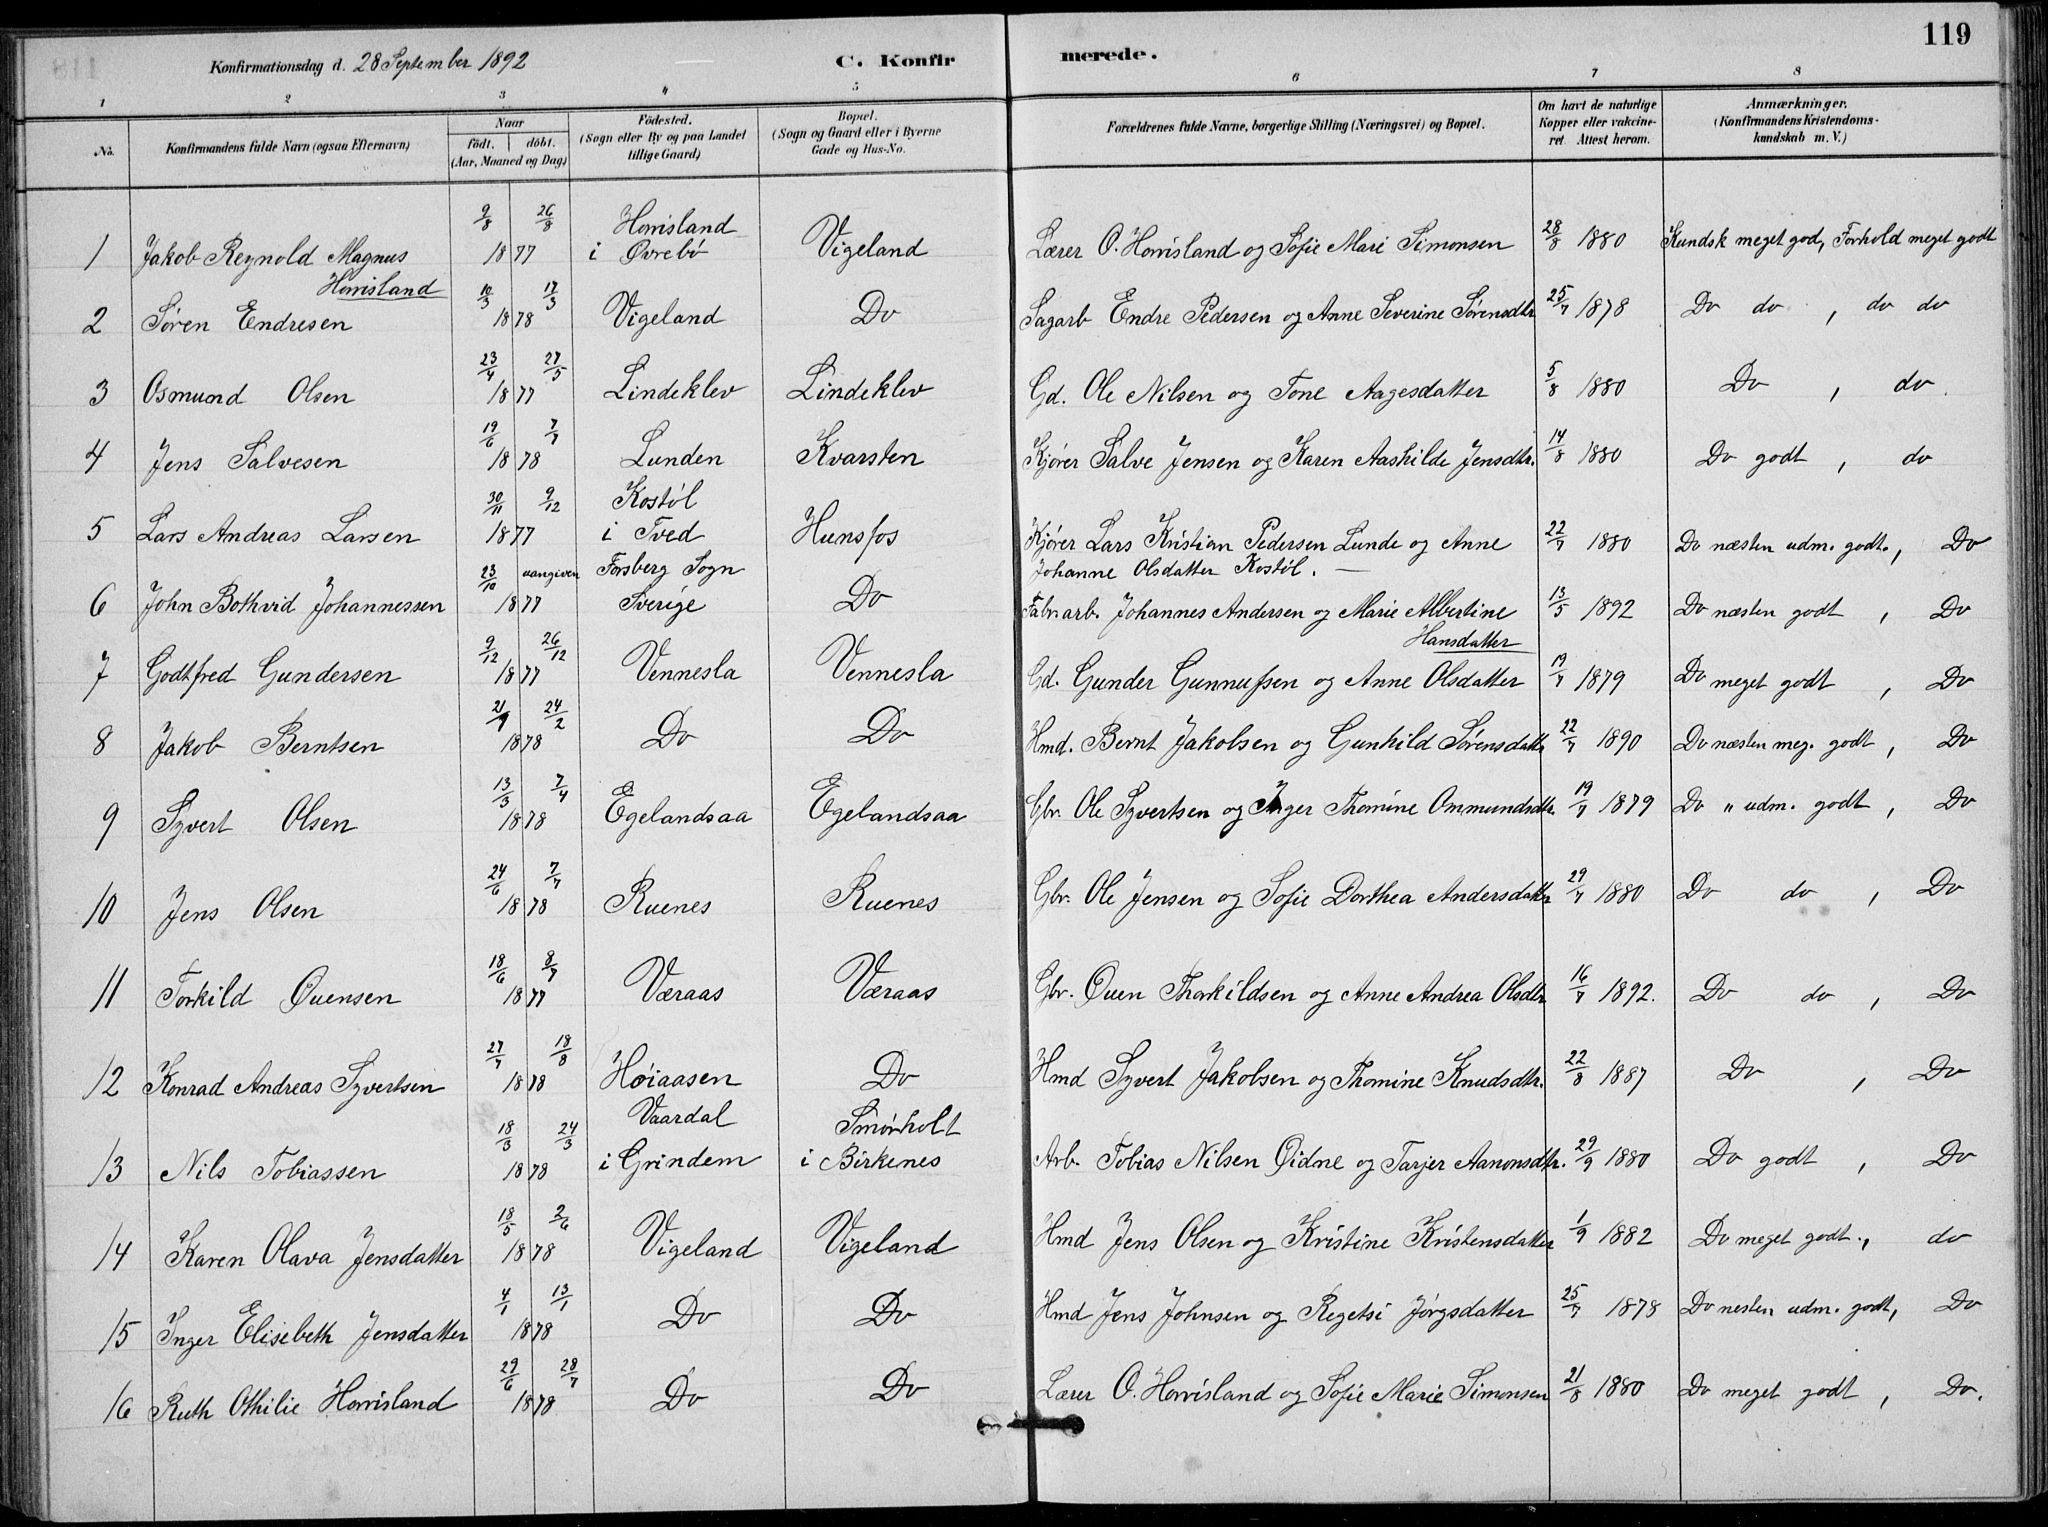 119
Konfirmationsdag d. 28 September 1892
C. Konfirmerede.
1 2 3 4 5 6 7 8
No. Konfirmandens fulde Navn (ogsaa Efternavn) Naar født. døbt. (Aar, Maaned og Dag) Födested. (Sogn eller By og paa Landet tillige Gaard) Bopæl. (Sogn og Gaard eller i Byerne Gade og Hus-No. Forældrenes fulde Navne, borgerlige Stilling (Næringsvei) og Bopæl. Om havt de naturlige Kopper eller vakcineret. Attest herom. Anmærkninger. (Konfirmandens Kristendomskundskab m. V.)
1 Jakob Reynold Magnus Horrisland 9/8 26/8 1877 Horrisland i Øvrebö Vigeland Lærer O. Horrisland og Sofie Mari Simonsen 28/8 1880 Kundsk meget god, Forhold meget godt
2 Søren Endresen 10/3 17/3 1878 Vigeland Do Sagarb Endre Pedersen og Anne Severine Sørensdtr 25/7 1878 Do do, do do
3 Osmund Olsen 23/4 27/5 1877 Lindeklev Lindeklev Gd. Ole Nilsen og Tone Aagesdatter 5/8 1880 Do, do.
4 Jens Salvesen 19/6 7/7 1878 Lunden Kvarsten Kjører Salve Jensen og Karen Aashilde Jensdtr. 14/8 1880 Do godt, do
5 Lars Andreas Larsen 30/11 9/12 1877 Kostöl i Tved Hunsfos Kjører Lars Kristian Pedersen Lunde og Anne Johanne Olsdatter Kostöl. 22/7 1880 Do næsten udm. godt., Do
6 John Bothvid Johannessen 23/10 uangiven 1877 Forsberg Sogn Sverige Do Fabr.arb. Johannes Andersen og Marie Albertine Hansdatter 13/5 1892 Do næsten godt, Do
7 Godtfred Gundersen 9/12 26/12 1877 Vennesla Vennesla Gd. Gunder Gunnufsen og Anne Olsdatter 19/7 1879 Do meget godt, Do
8 Jakob Berntsen 21/1 24/2 1878 Do Do Hmd. Bernt Jakobsen og Gunhild Sørensdatter 22/7 1890 Do næsten meg. godt, Do
9 Syvert Olsen 13/3 7/4 1878 Egelandsaa Egelandsaa Gbr. Ole Syvertsen og Inger Thomine Ommundsdtr. 19/7 1879 Do " udm. godt, Do
10 Jens Olsen 24/6 7/7 1878 Ruenes Ruenes Gbr. Ole Jensen og Sofie Dorthea Andersdatter 29/7 1880 Do do, Do
11 Torkild Øuensen 18/6 8/7 1877 Væraas Væraas Gbr. Øuen Thorkildsen og Anne Andrea Olsdtr 16/7 1892. Do do, Do
12 Konrad Andreas Syvertsen 27/7 18/8 1878 Høiaasen Do Hmd Syvert Jakobsen og Thomine Knudsdtr. 22/8 1887 Do, Do
13 Nils Tobiassen 18/3 24/3 1878 Vaardal i Grindem Smørholt i Birkenes Arb. Tobias Nilsen Øidne og Tarjer Aanonsdtr. 29/9 1880 Do godt, Do
14 Karen Olava Jensdatter 18/5 2/6 1878 Vigeland Vigeland Hmd Jens Olsen og Kristine Kristensdatter 1/9 1882 Do meget godt., do
15 Inger Elisebeth Jensdatter 4/1 13/1 1878 Do Do Hmd Jens Johnsen og Regetsi Jørgsdatter 25/7 1878 Do nesten udm. godt, Do
16 Ruth Othilie Horrisland 29/6 28/7 1878 Do Do Lærer O. Horrisland og Sofie Marie Simonsen 21/8 1880 Do meget godt, Do.